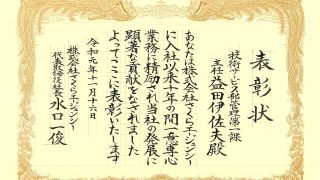 表彰状
技術サービス部管理第一課
主任 益田伊佐夫殿
あなたは株式会社さくらエージェンシー
に入社以来十年の間一意専心
業務に精励され当社の発展に
顕著な貢献をなされました
よってここに表彰いたします
令和元年十一月十六日
株式会社さくらエージェンシー
代表取締役社長 水口一俊